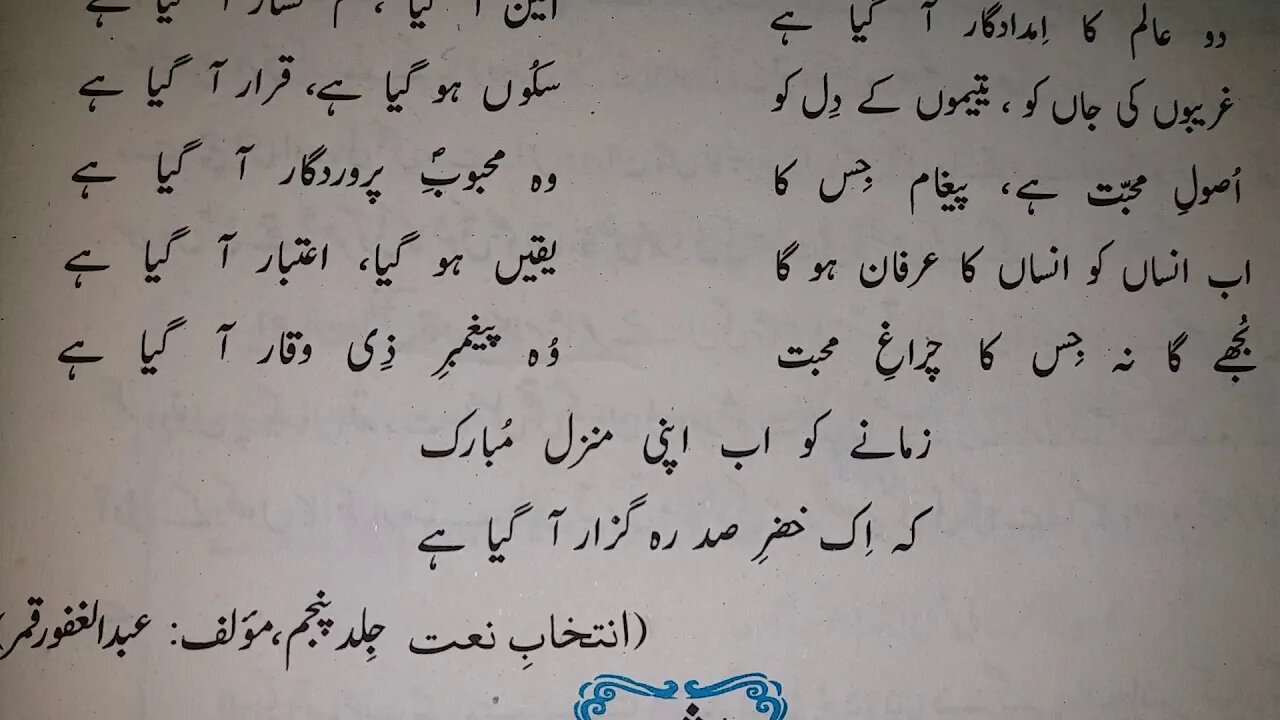 دو عالم کا اِمدادگار آ گیا ہے آ گیا ہے
غریبوں کی جاں کو ، یتیموں کے دِل کو سکُوں ہو گیا ہے، قرار آ گیا ہے
اُصولِ محبّت ہے، پیغام جِس کا وہ محبوبِؐ پروردگار آ گیا ہے
اب انساں کو انساں کا عرفان ہو گا یقیں ہو گیا، اعتبار آ گیا ہے
بُجھے گا نہ جِس کا چراغِ محبت وُہ پیغمبرِ ذِی وقار آ گیا ہے
زمانے کو اب اپنی منزل مُبارک
کہ اِک خضرِ صد رہ گزار آ گیا ہے
(انتخابِ نعت جِلد پنجم،مؤلف: عبدالغفورقمر)